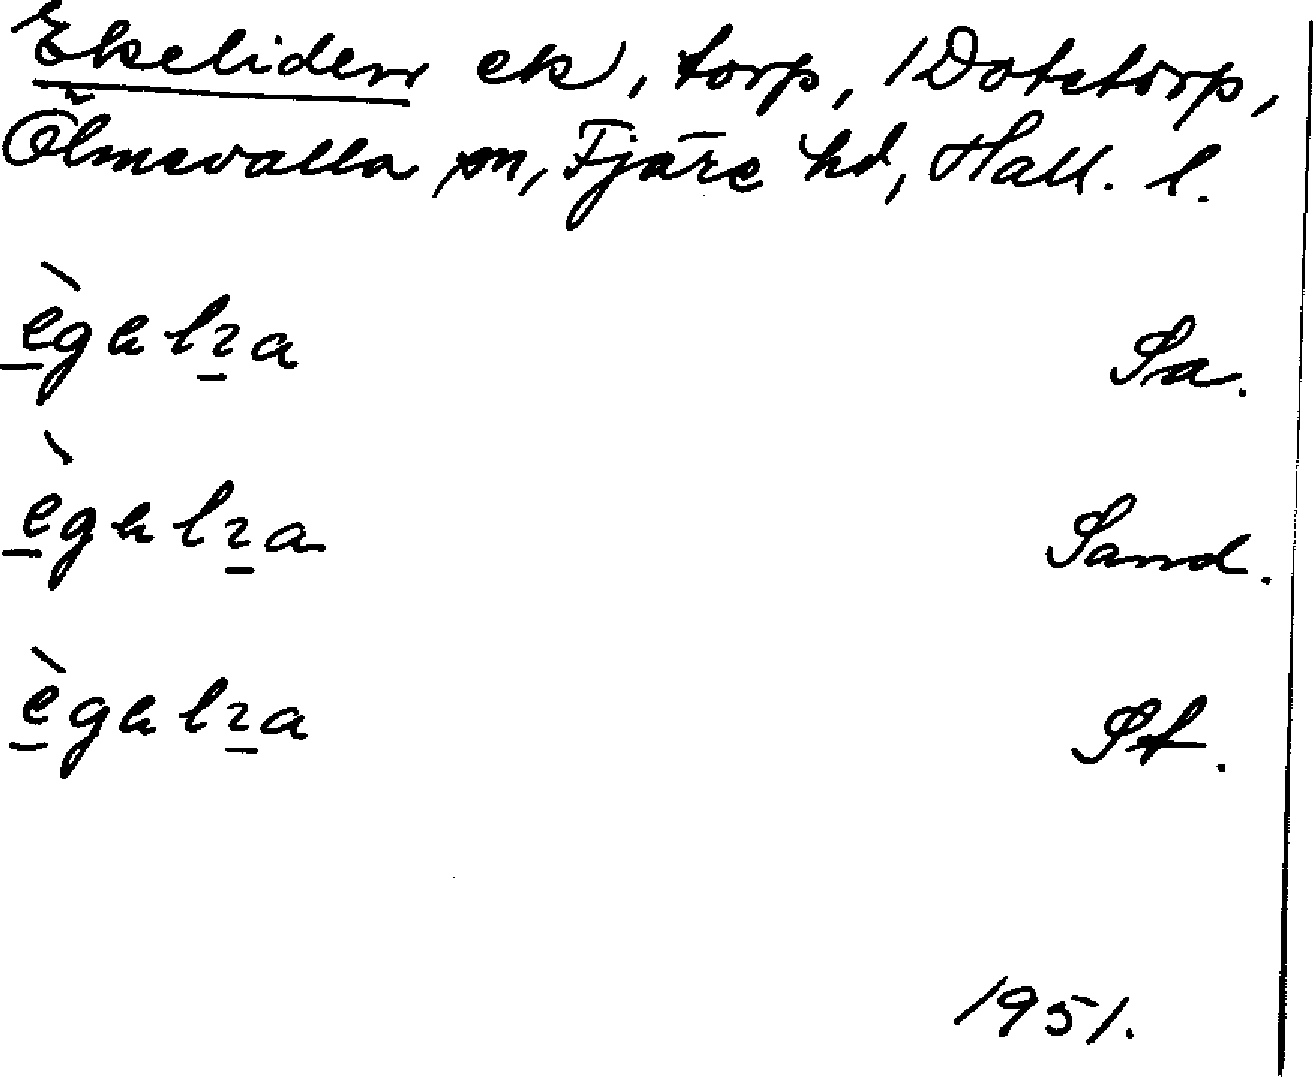 Ekeliden ek, torp, 1 Dotetorp,
Ölmevalla sn, Fjäre hd, Hall. l.
ègalɩa Sa.
ègalɩa Sand.
ègalɩa St.
1951.